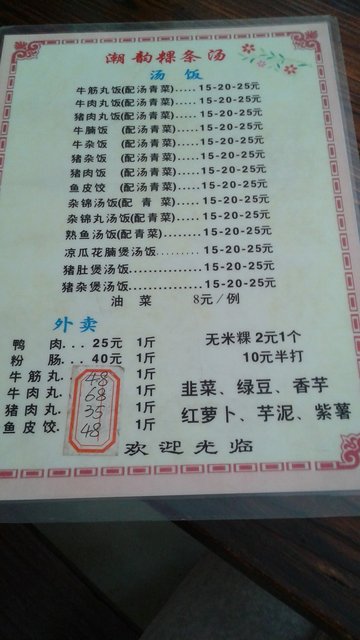 潮韵粿条汤
汤饭
牛筋丸饭(配汤青菜).....15-20-25元
牛肉丸饭(配汤青菜).....15-20-25元
猪肉丸饭(配汤青菜).....15-20-25元
牛腩饭 (配汤青菜).....15-20-25元
牛杂饭 (配汤青菜).....15-20-25元
猪杂饭 (配汤青菜).....15-20-25元
猪肉饭 (配汤青菜).....15-20-25元
鱼皮饺 (配汤青菜).....15-20-25元
杂锦汤饭(配 青 菜).....15-20-25元
杂锦丸汤饭(配青菜).....15-20-25元
熟鱼汤饭(配青菜).......15-20-25元
凉瓜花腩煲汤饭.........15-20-25元
猪肚煲汤饭..............15-20-25元
猪杂煲汤饭..............15-20-25元
油 菜 8元/例
外卖
鸭 肉...25元 1斤
粉 肠...40元 1斤
牛筋丸. 48 1斤
牛肉丸. 68 1斤
猪肉丸. 35 1斤
鱼皮饺. 48 1斤
无米粿 2元1个
10元半打
韭菜、绿豆、香芋
红萝卜、芋泥、紫薯
欢迎光临